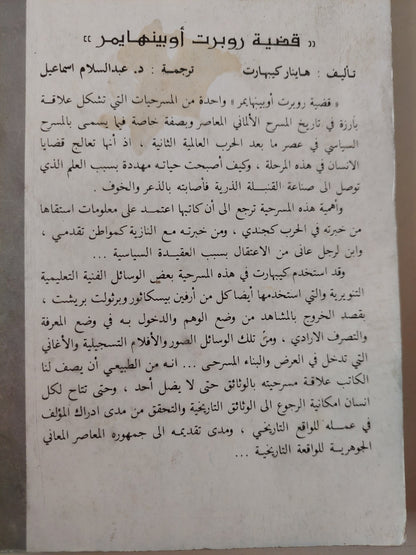 « قضية روبرت أوبينهايمر »
تأليف : هاينار كيبهارت ترجمة : د. عبدالسلام اسماعيل
« قضية روبرت أوبينهايمر » واحدة من المسرحيات التي تشكل علاقة
بارزة في تاريخ المسرح الألماني المعاصر وبصفة خاصة فيما يسمى بالمسرح
السياسي في عصر ما بعد الحرب العالمية الثانية ، اذ أنها تعالج قضايا
الانسان في هذه المرحلة ، وكيف أصبحت حياته مهددة بسبب العلم الذي
توصل الى صناعة القنبلة الذرية فأصابته بالذعر والخوف .
وأهمية هذه المسرحية ترجع الى أن كاتبها اعتمد على معلومات استقاها
من خبرته في الحرب كجندي ، ومن خبرته مع النازية كمواطن تقدمي ،
وابن لرجل عانى من الاعتقال بسبب العقيدة السياسية ...
وقد استخدم كيبهارت في هذه المسرحية بعض الوسائل الفنية التعليمية
التنويرية والتي استخدمها أيضا كل من أرفين بيسكاتور وبرتولت بريشت ،
بقصد الخروج بالمشاهد من وضع الوهم والدخول به في وضع المعرفة
والتصرف الارادي ، ومن تلك الوسائل الصور والأفلام التسجيلية والأغاني
التي تدخل في العرض والبناء المسرحى ... انه من الطبيعي أن يصف لنا
الكاتب علاقة مسرحيته بالوثائق حتى لا يضل أحد ، وحتى تتاح لكل
انسان امكانية الرجوع الى الوثائق التاريخية والتحقق من مدى ادراك المؤلف
في عمله للواقع التاريخي ، ومدى تقديمه الى جمهوره المعاصر المعاني
الجوهرية للواقعة التاريخية ...